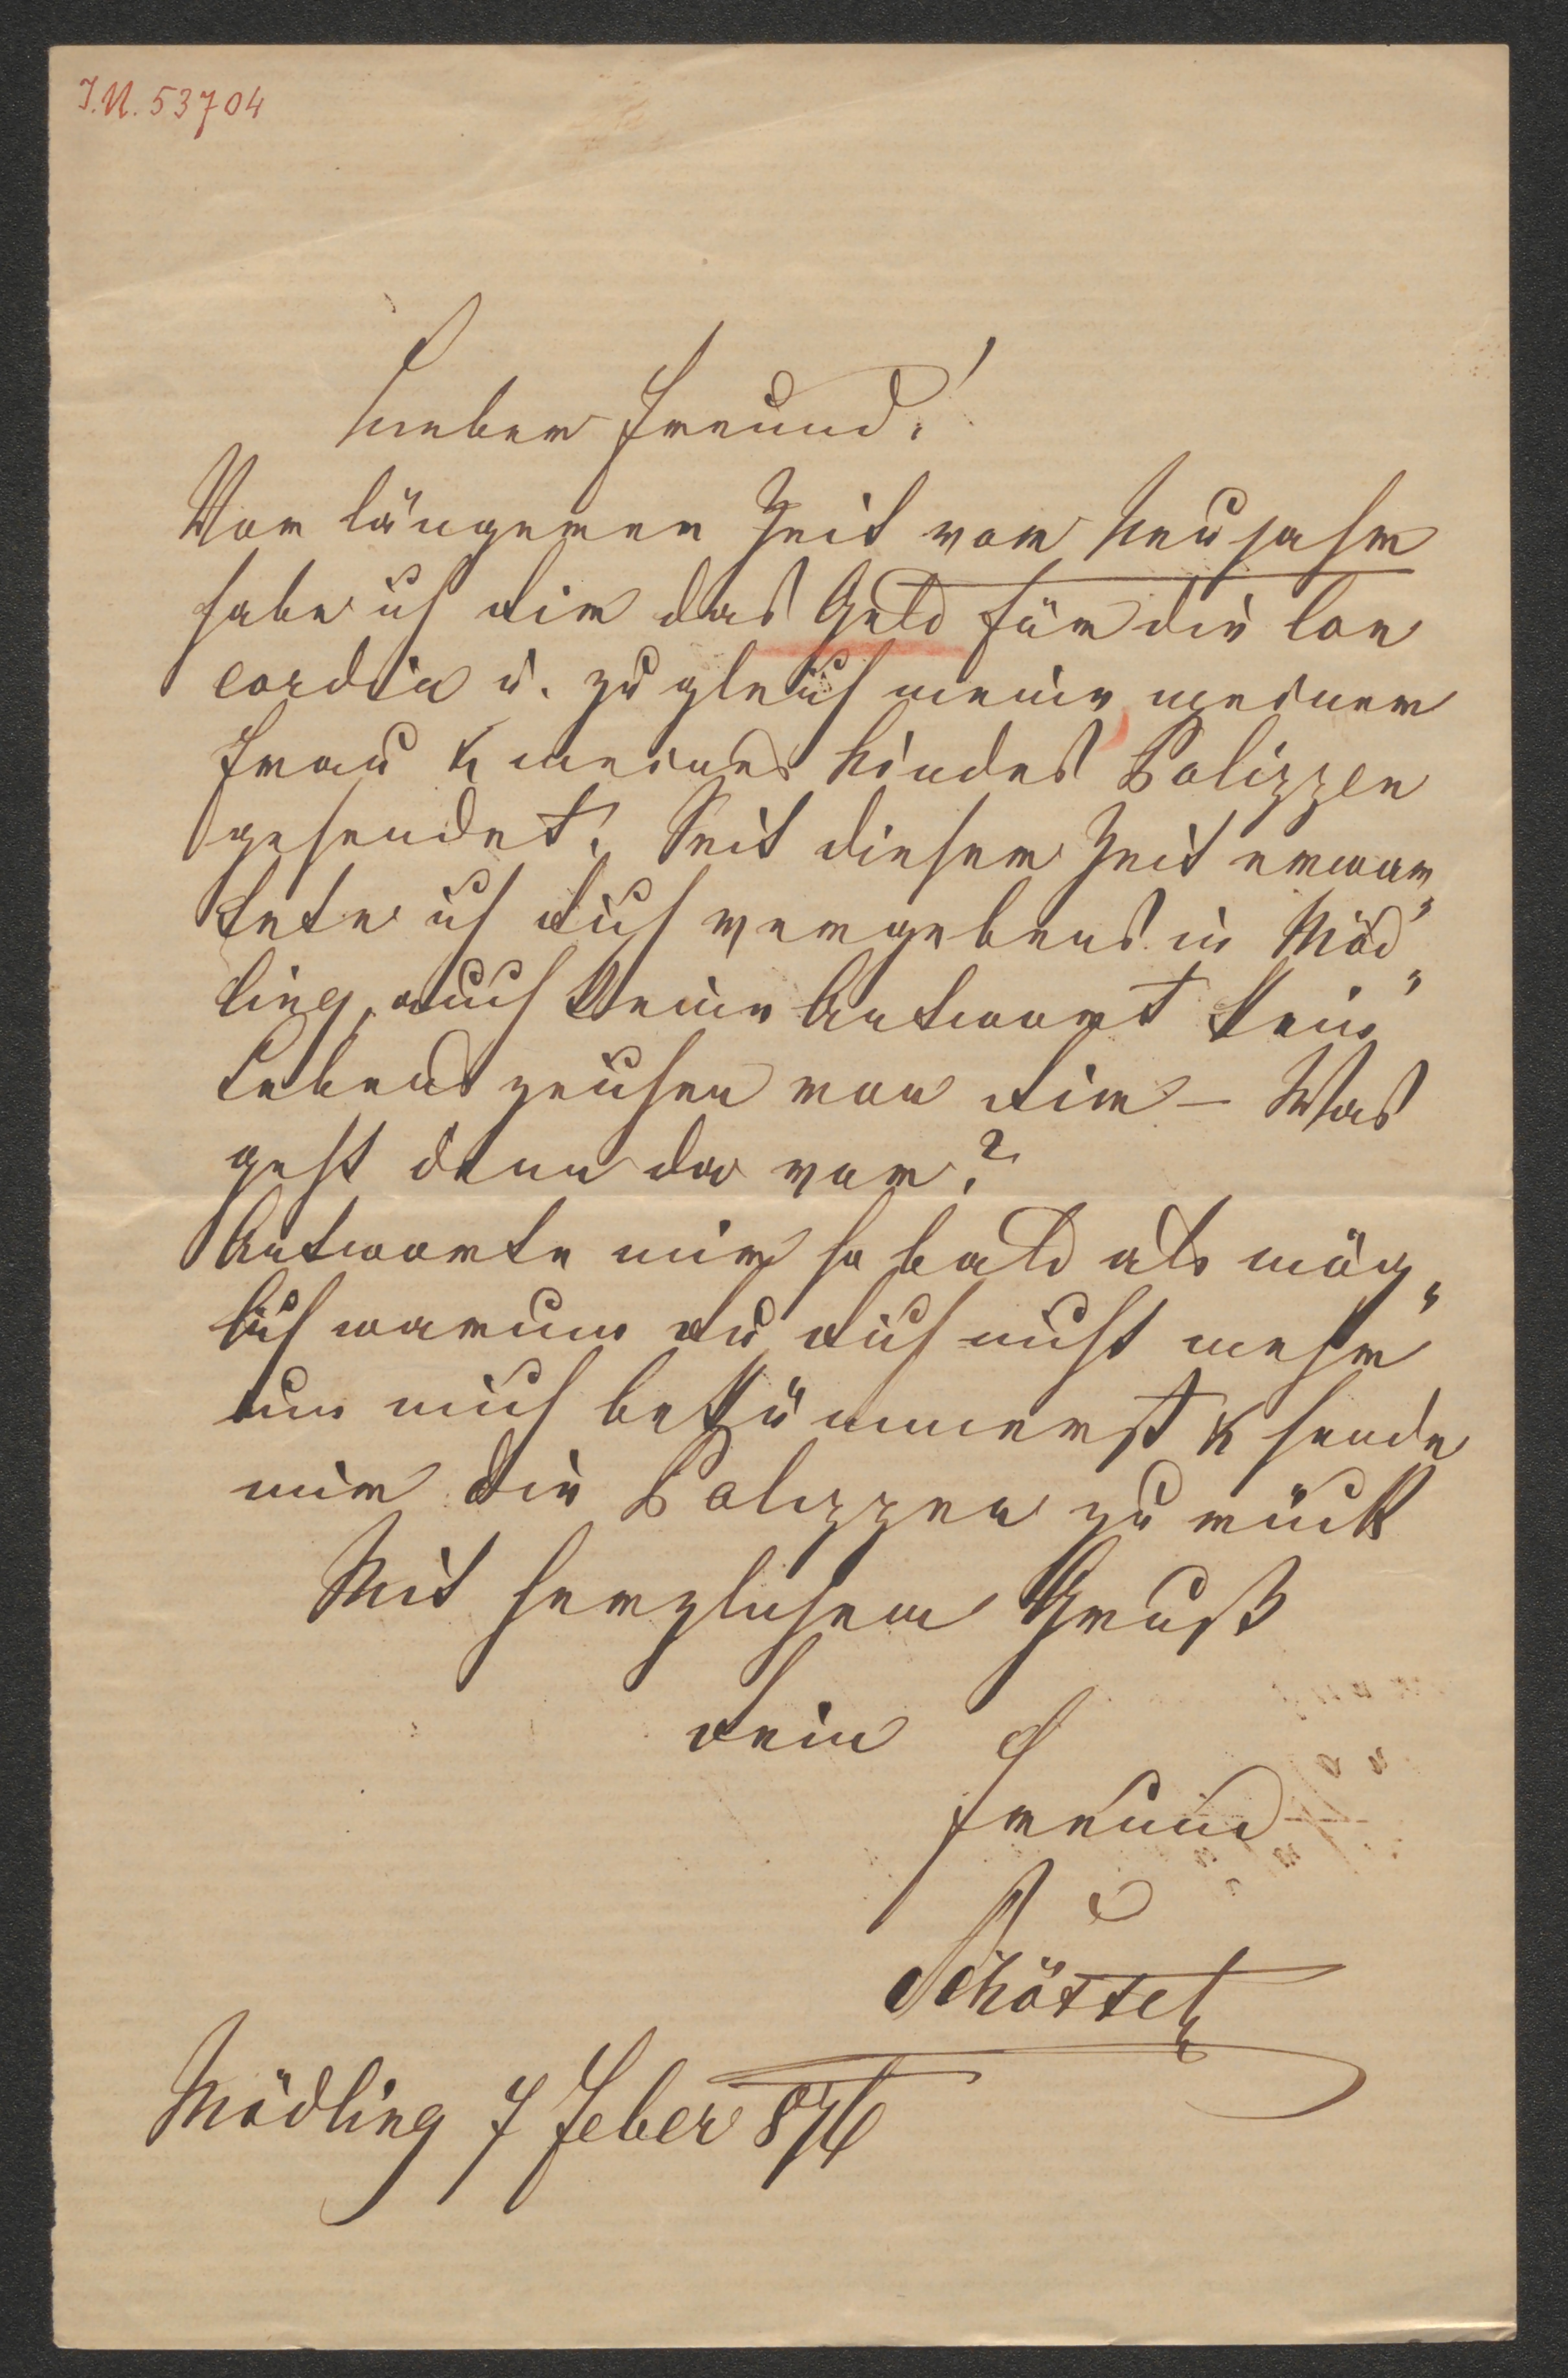 I.N. 53704
Lieber Freund!
Vor längerer Zeit vor Neujahr
habe ich dir das Geld für die Con
cordia u. zugleich meine meiner
Frau & meines Kindes Polizzen
gesendet. Seit dieser Zeit erwar„
tete ich dich vergebens in Möd„
ling, auch keine Antwort kein
Lebenszeichen von dir – Was
geht denn da vor?
Antworte mir so bald als mög„
lich warum du dich nicht mehr
um mich bekümmerst & sende
mir die Polizzen zurück
Mit herzlichem Gruß
dein
Freund
Schöttel
Mödling 7 Feber 876